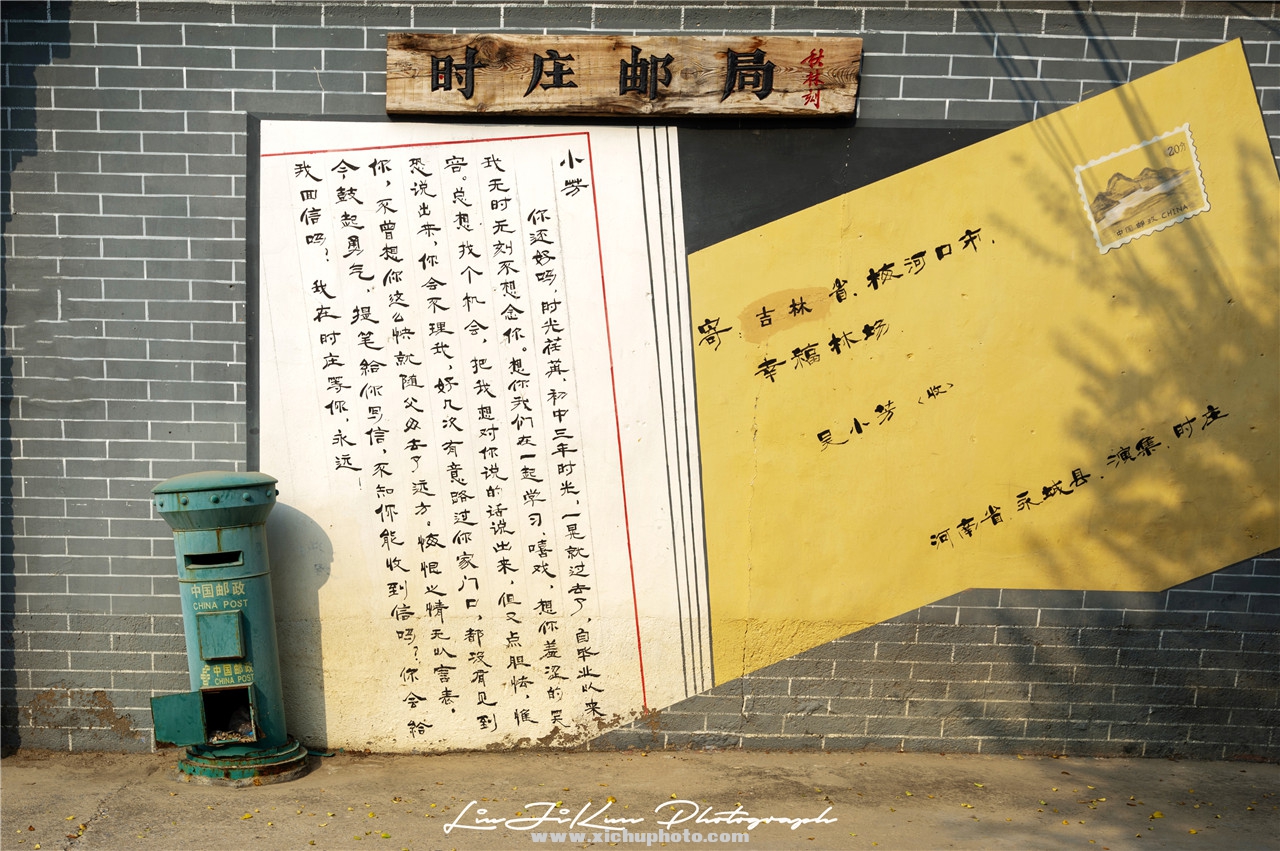 时庄邮局
秋林刻
小芳
你还好吗，时光荏苒，初中三年时光，一晃就过去了，自毕业以来
我无时无刻不想念你。想你我们在一起学习，嘻戏，想你羞涩的笑
容。总想找个机会，把我想对你说的话说出来，但又点胆怯，惟
恐说出来，你会不理我，好几次有意路过你家门口，都没有见到
你，不曾想你这么快就随父母去了远方。悔恨之情无以言表。
今鼓起勇气，提笔给你写信，不知你能收到信吗？你会给
我回信吗？我在时庄等你，永远！
20分
中国邮政 CHINA
寄：吉林省、梅河口市，
幸福林场
吴小芳（收）
河南省、永城县、演集、时庄
中国邮政
CHINA POST
中国邮政
CHINA POST
LiuJiKun Photograph
www.xichuphoto.com